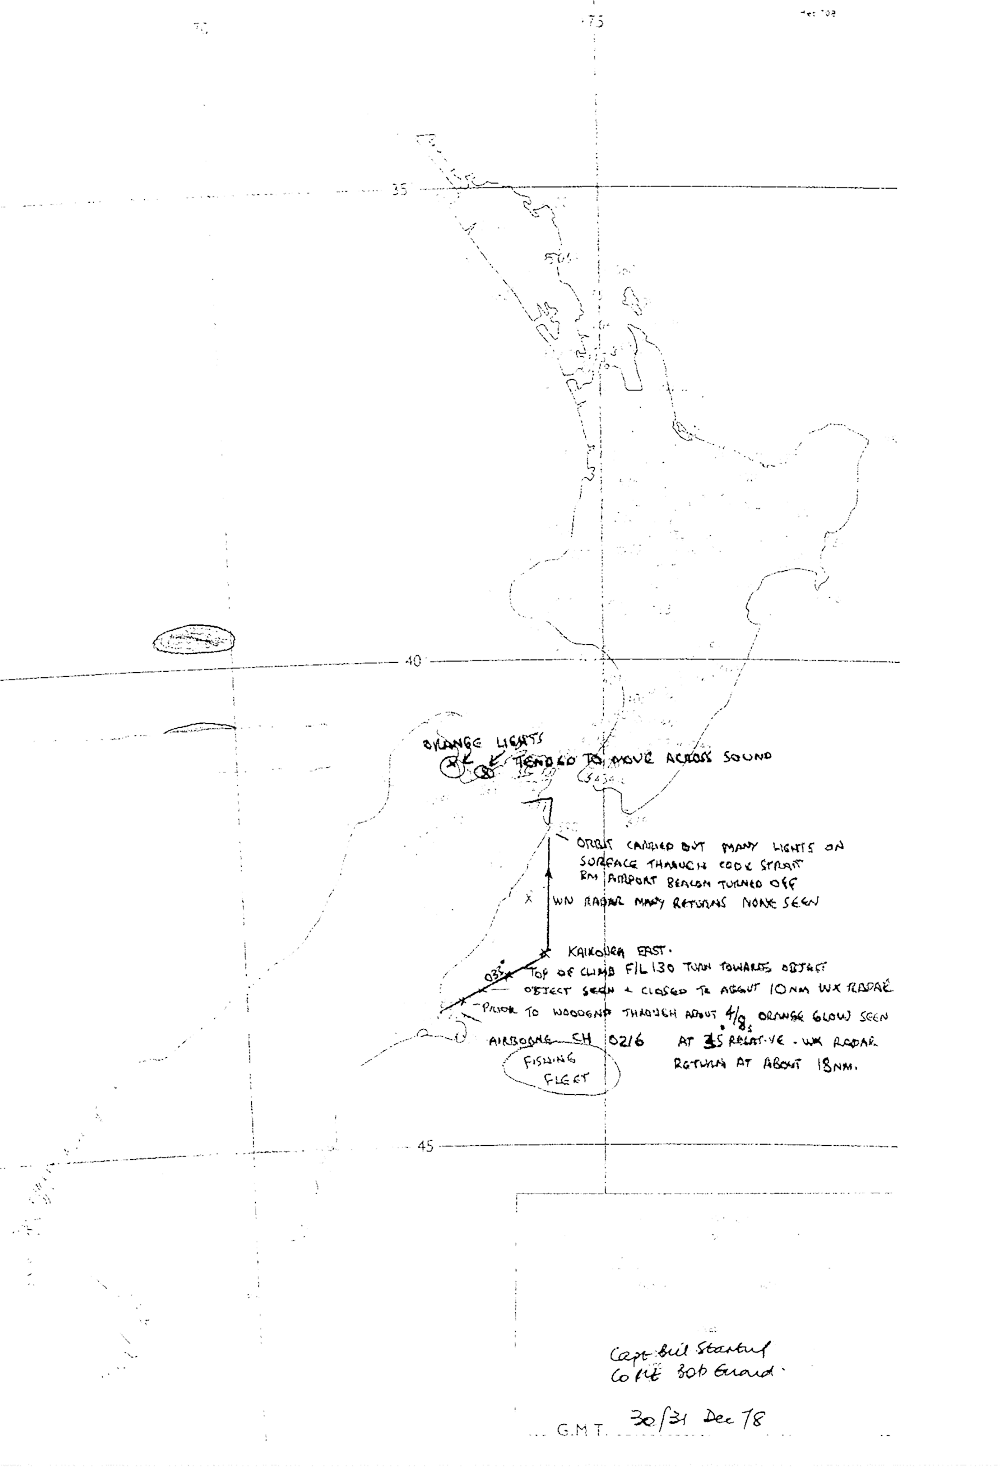 75
35
40
ORANGE LIGHTS
TENDED TO MOVE ACROSS SOUND
ORBIT CARRIED OUT MANY LIGHTS ON
SURFACE THROUGH COOK STRAIT
BM AIRPORT BEACON TURNED OFF
WN RADAR MANY RETURNS NONE SEEN
KAIKOURA EAST.
033°
TOP OF CLIMB F/L 130 TURN TOWARDS OBJECT
OBJECT SEEN + CLOSED TO ABOUT 10NM WX RADAR
PRIOR TO WOODEND THROUGH ABOUT 4/8s ORANGE GLOW SEEN
AIRBORNE CH 0216 AT RELATIVE - WX RADAR
RETURN AT ABOUT 18NM.
FISHING
FLEET
45
Capt Bill Startup
Co Plt Bob Guard.
G.M.T. 30/31 Dec 78